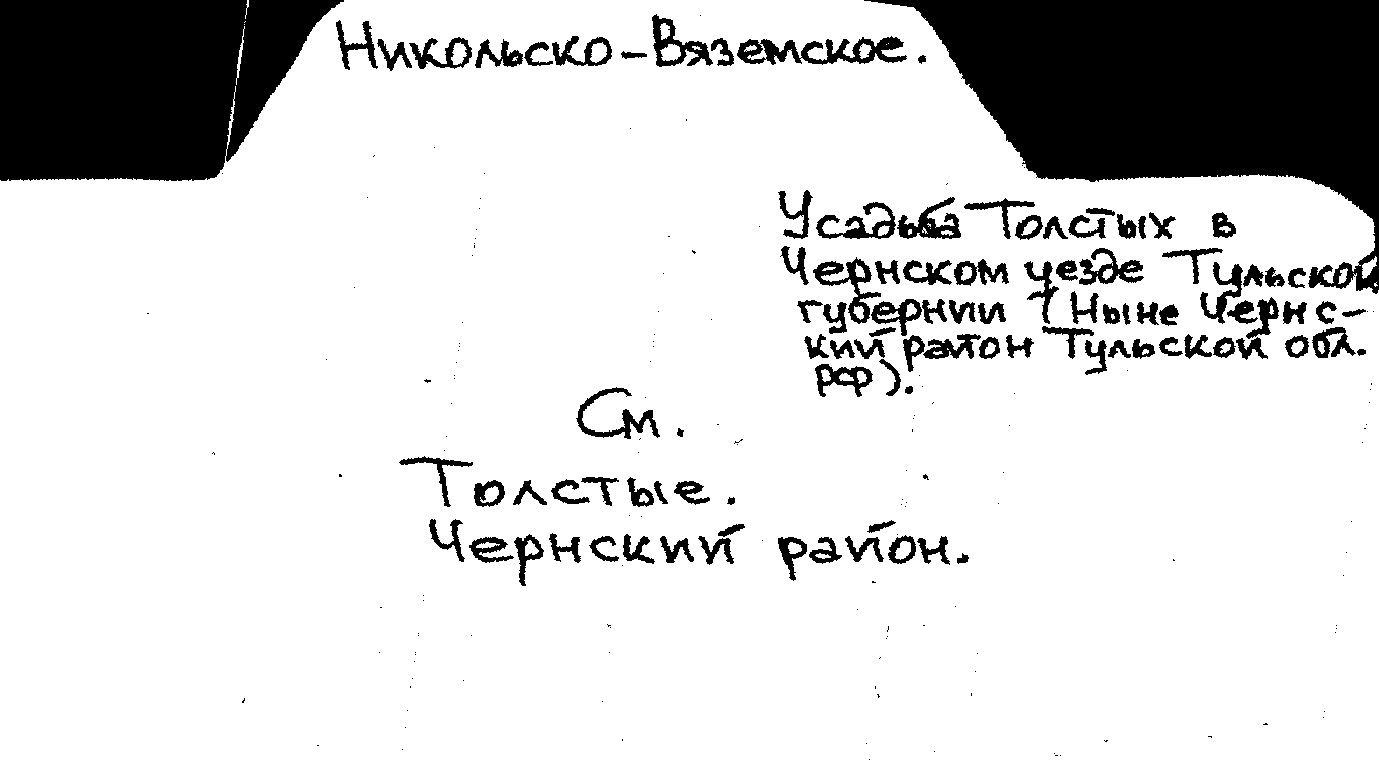 Никольско-Вяземское.
Усадьба Толстых в
Чернском уезде Тульской
губернии (Ныне Чернс-
кий район Тульской обл.
РФ).
См.
Толстые.
Чернский район.